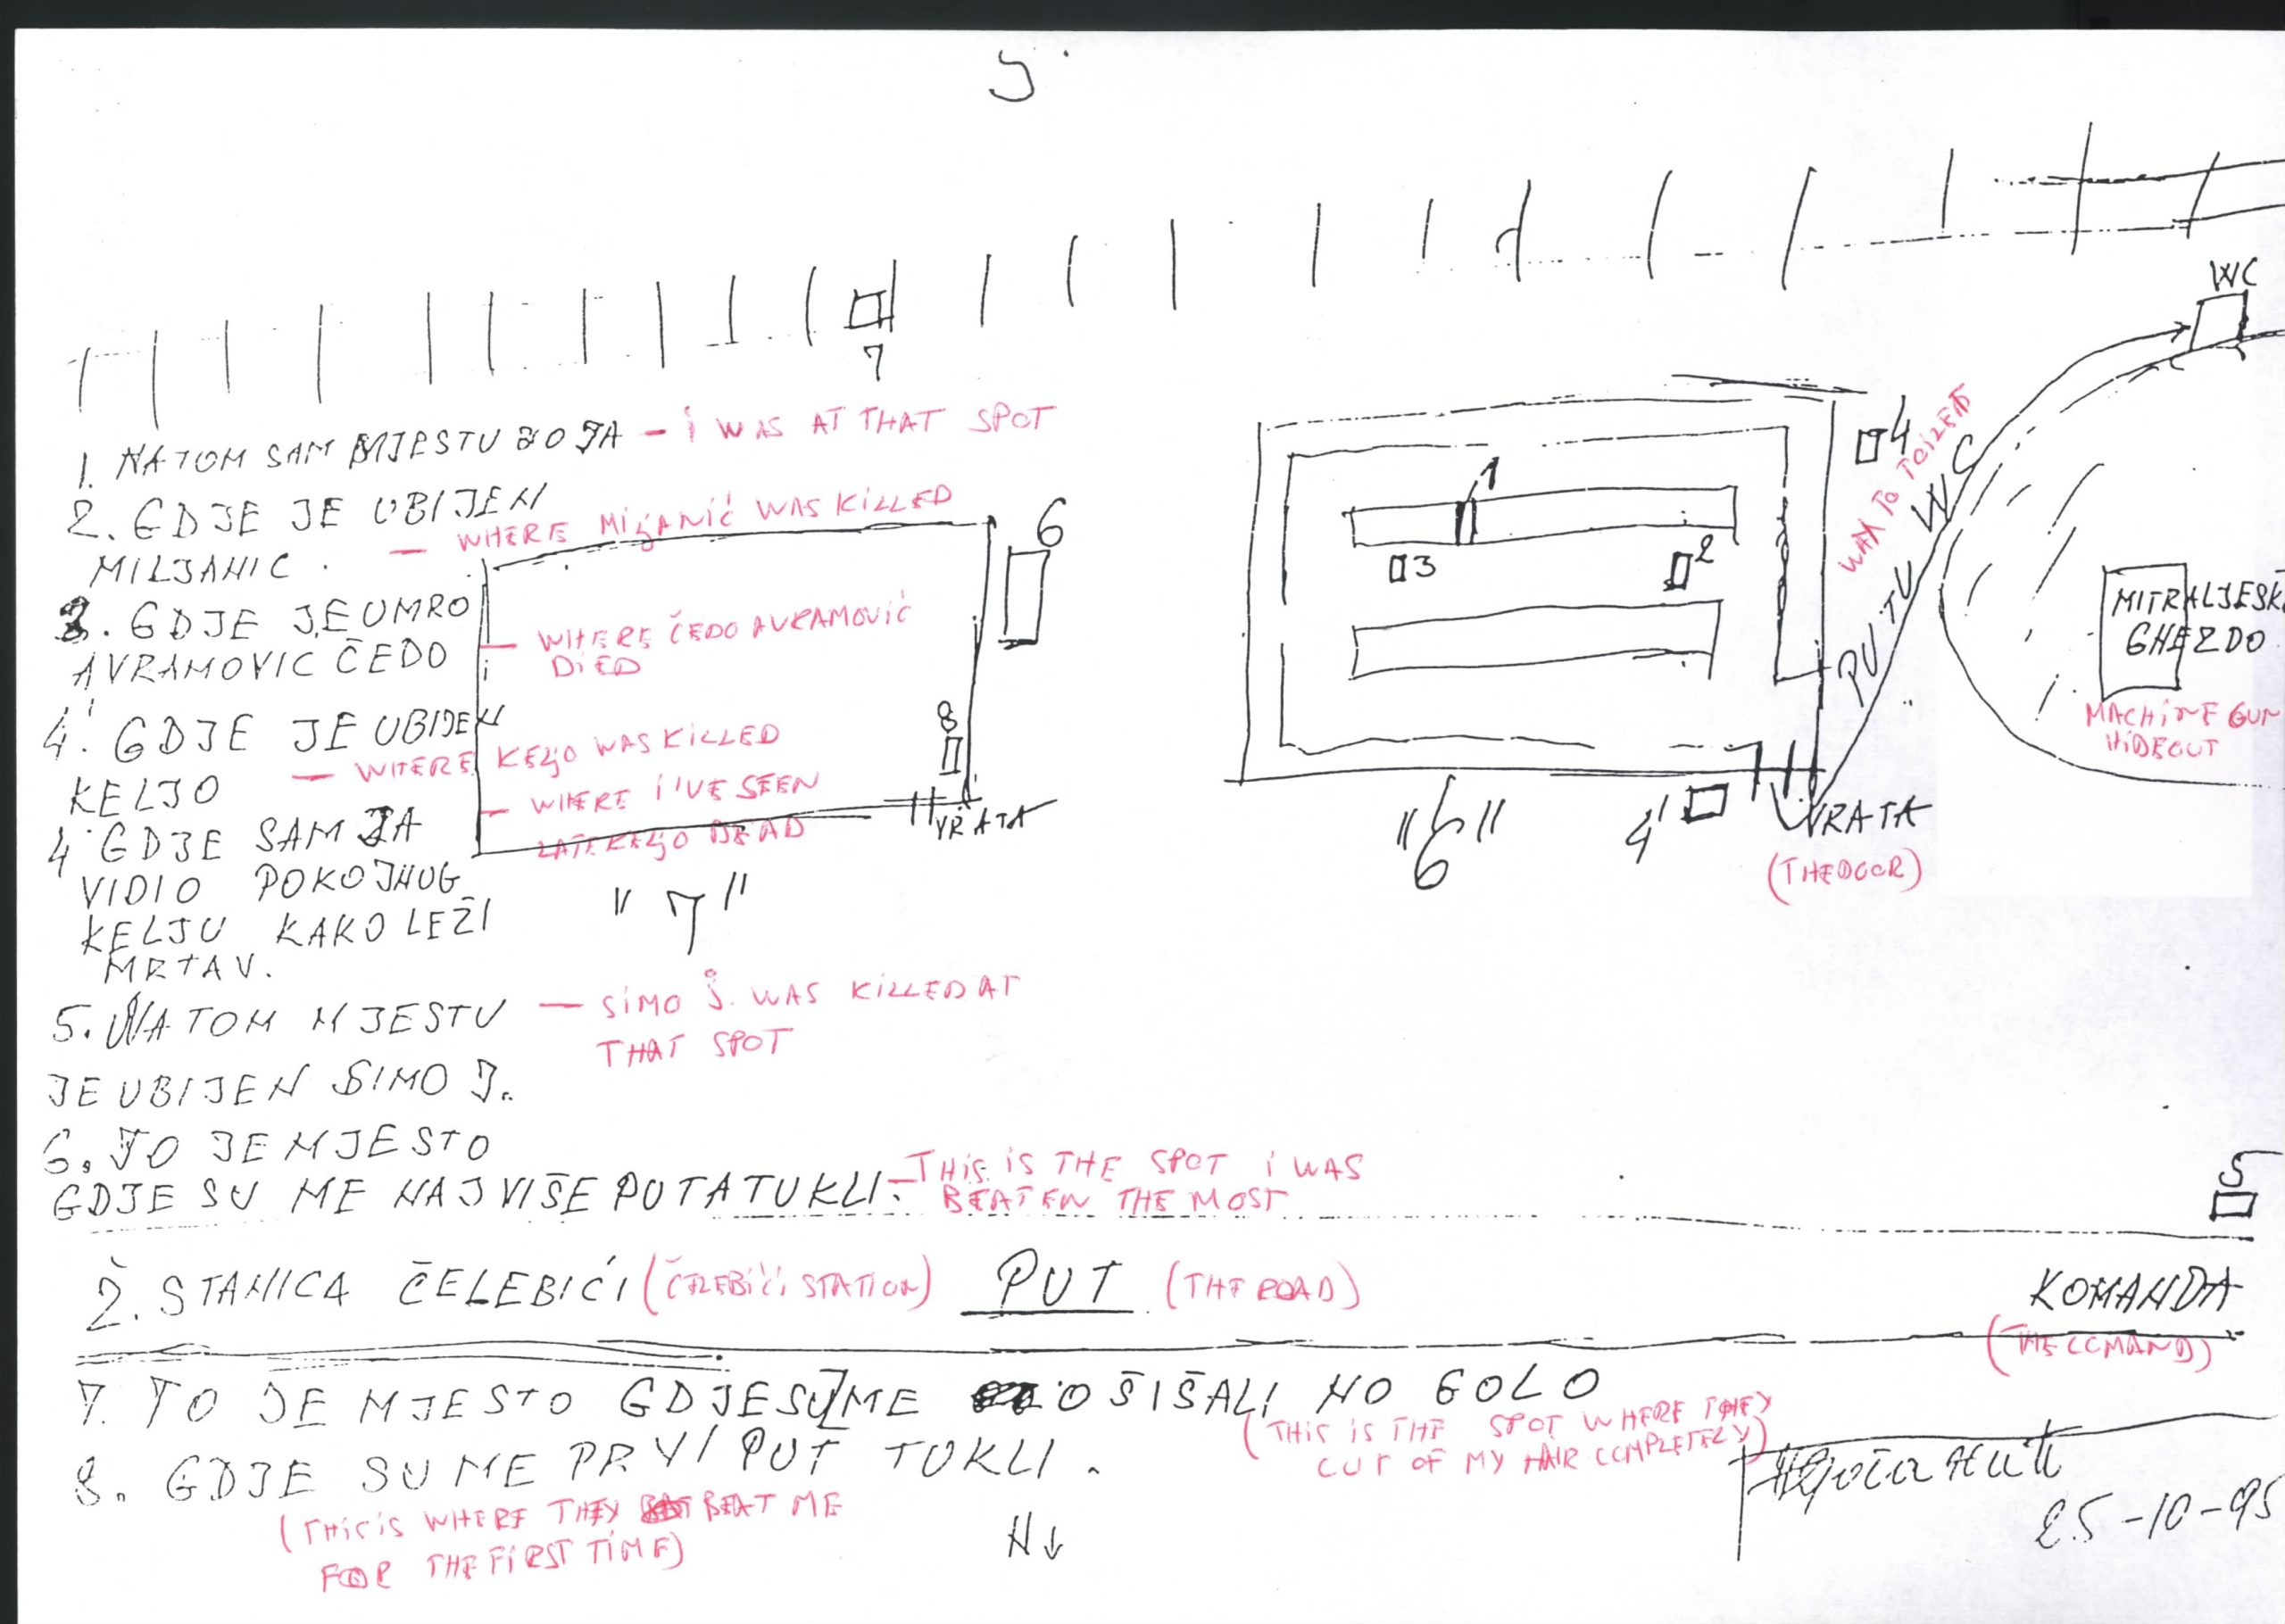 J
WC
7
1. NA TOM SAM MJESTU BO JA - I WAS AT THAT SPOT
2. GDJE JE UBIJEN
- WHERE MILJANIĆ WAS KILLED
MILJANIC.
3. GDJE JE UMRO
AVRAMOVIC ČEDO
- WHERE ČEDO AVRAMOVIĆ
DIED
4'. GDJE JE UBIJEN
KELJO
- WHERE KELJO WAS KILLED
4 GDJE SAM JA
VIDIO POKOJNUG
KELJU KAKO LEŽI
MRTAV.
- WHERE I'VE SEEN
KELJO DEAD
6
8
VRATA
"7"
1
3
2
4
WAY TO
PUT U WC
MITRALJESK
GNEZDO
MACHINE GUN
HIDEOUT
"6"
4'
VRATA
(THE DOOR)
5. NA TOM MJESTU - SIMO J. WAS KILLED AT
THAT SPOT
JE UBIJEN SIMO J.
6. TO JE MJESTO
GDJE SU ME NAJVIŠE PUTA TUKLI. - THIS IS THE SPOT I WAS
BEATEN THE MOST
5
Ž. STANICA ČELEBIĆI (ČELEBIĆI STATION) PUT (THE ROAD)
KOMANDA
(THE COMAND)
7. TO JE MJESTO GDJE SU ME OŠIŠALI NO GOLO
(THIS IS THE SPOT WHERE THEY
CUT OF MY HAIR COMPLETELY)
8. GDJE SU ME PRVI PUT TUKLI.
(THIS IS WHERE THEY BEAT ME
FOR THE FIRST TIME)
N↓
25-10-95